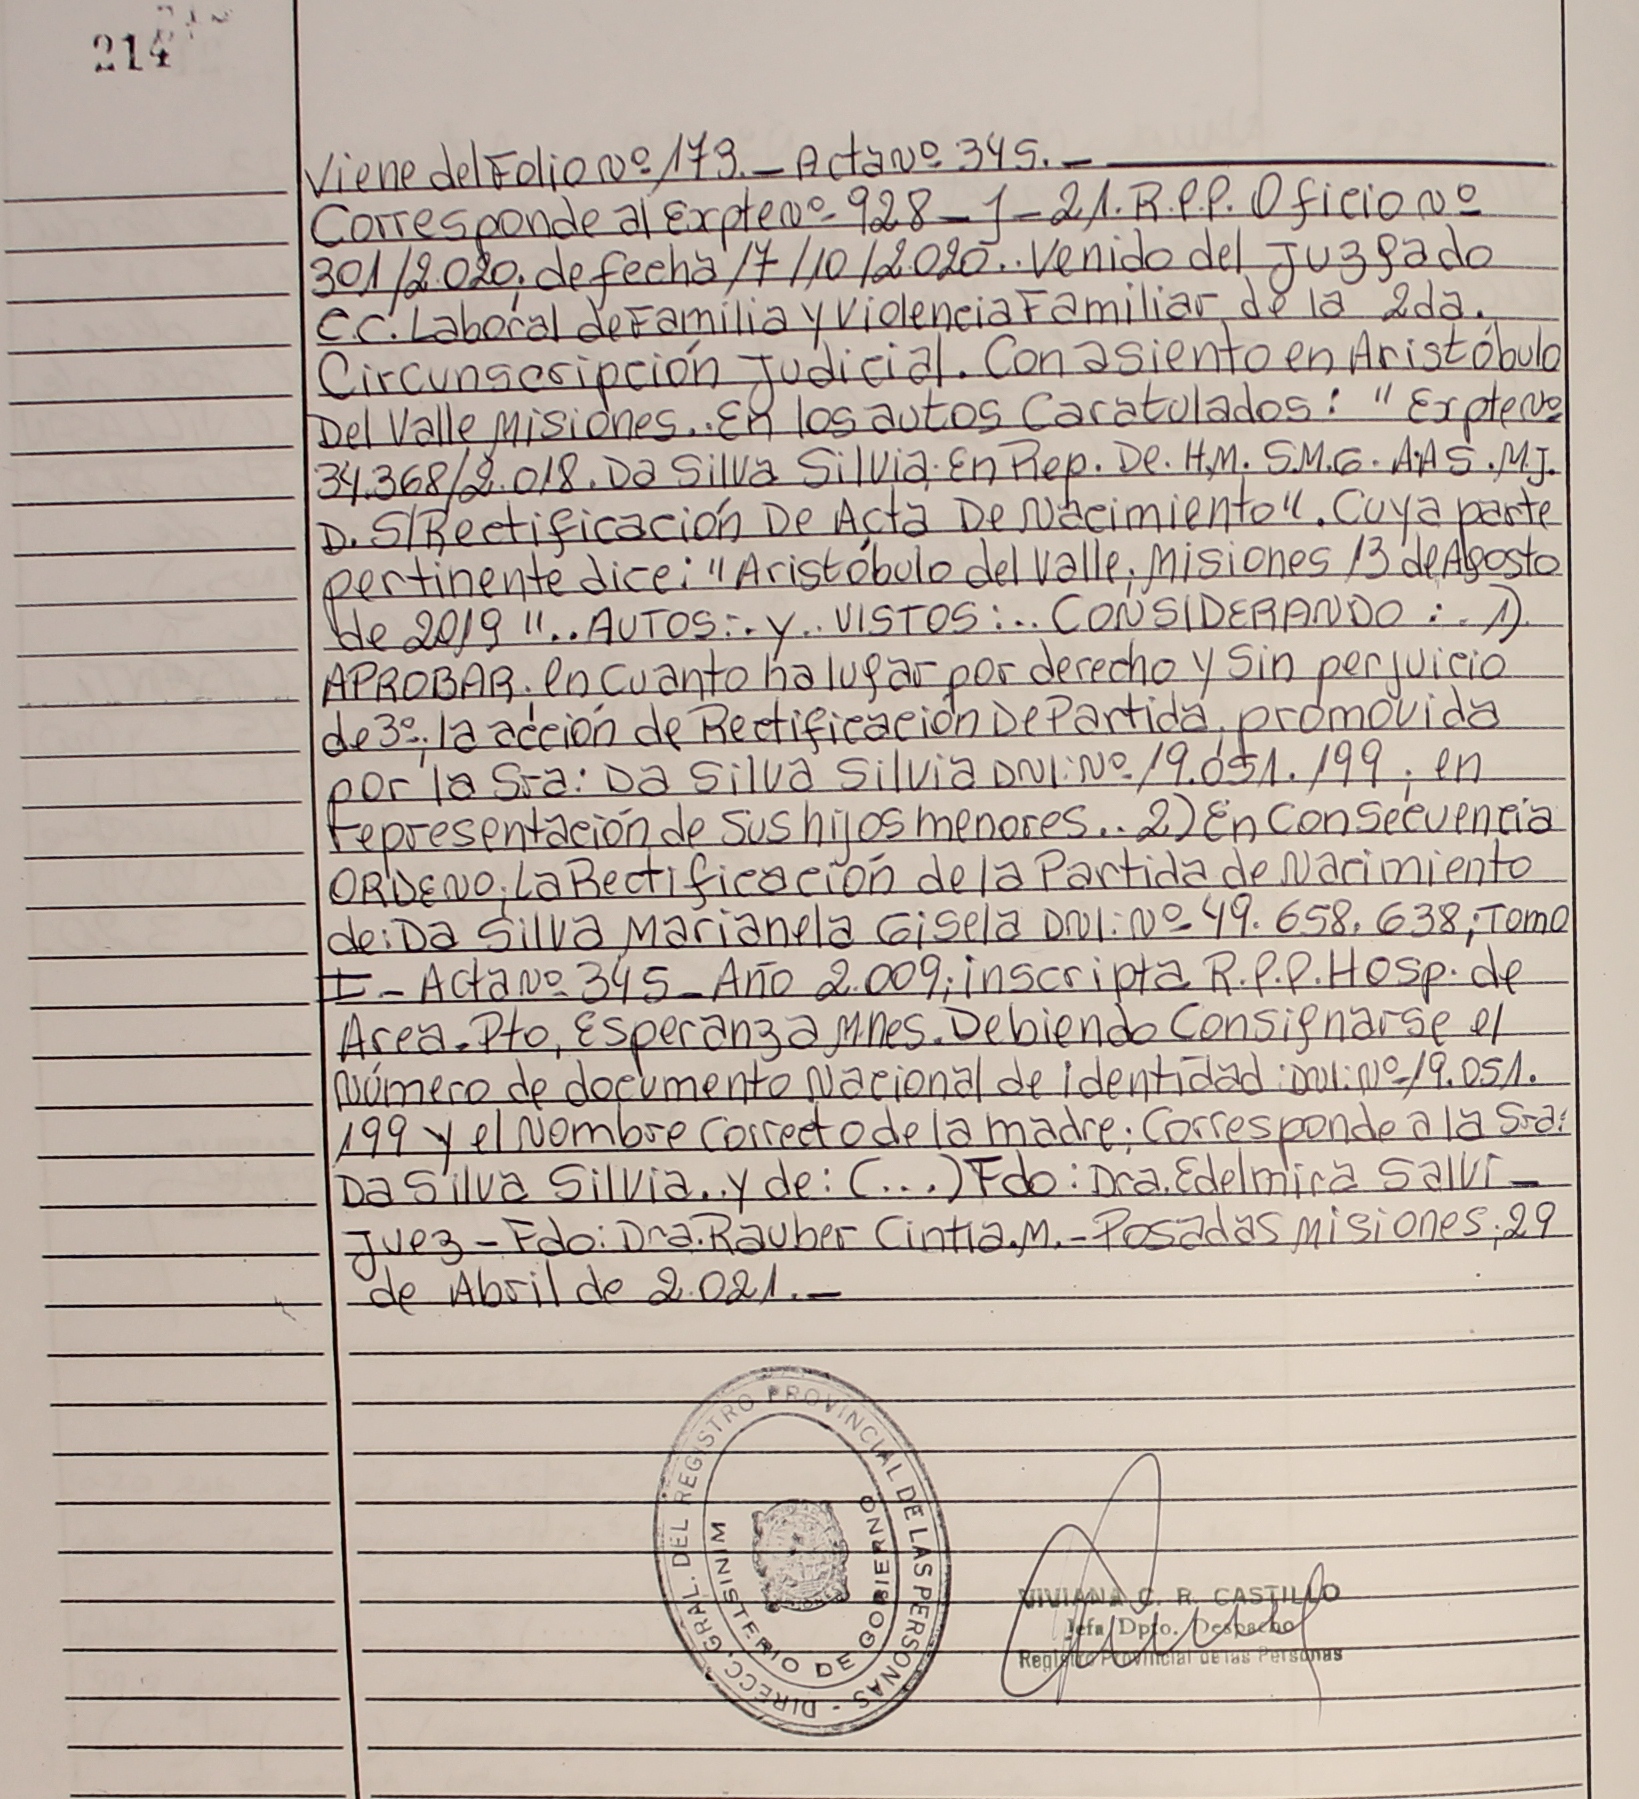 214
Viene del Folio Nº 173.- Acta Nº 345.-
Corresponde al Expte Nº 928-J-21. R.P.P. Oficio Nº
301/2.020; de fecha 17/10/2020.. Venido del Juzgado
C.C. Laboral de Familia y Violencia Familiar de la 2da.
Circunscripción Judicial. Con asiento en Aristóbulo
Del Valle Misiones.. En los autos Caratulados: "Expte Nº
34.368/2.018. Da Silva Silvia. En Rep. De. H.M. S.M.G. A.A S. M.J.
D. S/Rectificación De Acta De Nacimiento". Cuya parte
pertinente dice: "Aristóbulo del Valle; Misiones 13 de Agosto
de 2019 ".. AUTOS:. y.. VISTOS:.. CONSIDERANDO :. 1)
APROBAR. en cuanto ha lugar por derecho y sin perjuicio
de 3º; la acción de Rectificación De Partida, promovida
por la Sra: Da Silva Silvia DNI: Nº 19.051.199; en
representación de sus hijos menores.. 2) En Consecuencia
ORDENO; La Rectificación de la Partida de Nacimiento
de: Da Silva Marianela Gisela DNI: Nº 49.658.638; Tomo
I - Acta Nº 345 - Año 2.009; inscripta R.P.P. Hosp. de
Area. Pto, Esperanza Mnes. Debiendo Consignarse el
Número de documento Nacional de identidad: DNI: Nº 19.051.
199 y el Nombre Correcto de la madre; Corresponde a la Sra:
Da Silva Silvia.. y de: (...) Fdo: Dra. Edelmira Salvi-
Juez - Fdo: Dra. Rauber Cintia. M. - Posadas Misiones; 29
de Abril de 2.021.-
DIRECC. GRAL. DEL REGISTRO PROVINCIAL DE LAS PERSONAS -
MINISTERIO DE GOBIERNO
VIVIANA C. R. CASTILLO
Jefa Dpto. Despacho
Registro Provincial de las Personas